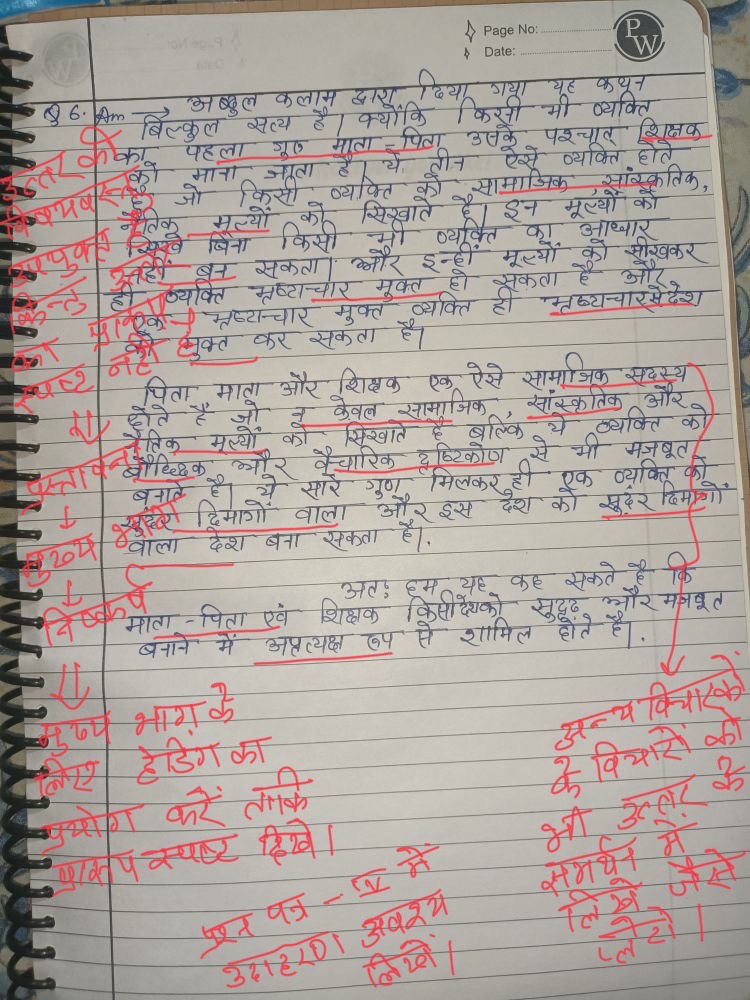 Page No:
Date:
PW
Q 6. Ans → अब्दुल कलाम द्वारा दिया गया यह कथन
बिल्कुल सत्य है। क्योंकि किसी भी व्यक्ति
का पहला गुरु माता-पिता उसके पश्चात् शिक्षक
को माना जाता है। ये तीन ऐसे व्यक्ति होते
हैं जो किसी व्यक्ति को सामाजिक, सांस्कृतिक,
नैतिक मूल्यों को सिखाते हैं। इन मूल्यों को
सिखे बिना किसी भी व्यक्ति का आधार
नहीं बन सकता। और इन्हीं मूल्यों को सीखकर
ही व्यक्ति भ्रष्टाचार मुक्त हो सकता है और
एक भ्रष्टाचार मुक्त व्यक्ति ही भ्रष्टाचार से देश
को मुक्त कर सकता है।
पिता माता और शिक्षक एक ऐसे सामाजिक सदस्य
होते हैं जो न केवल सामाजिक, सांस्कृतिक और
नैतिक मूल्यों को सिखाते हैं बल्कि ये व्यक्ति को
बौद्धिक और वैचारिक दृष्टिकोण से भी मजबूत
बनाते हैं। ये सारे गुण मिलकर ही एक व्यक्ति को
सुंदर दिमागों वाला और इस देश को सुंदर दिमागों
वाला देश बना सकता है।
अतः हम यह कह सकते हैं कि
माता-पिता एवं शिक्षक किसी देश को सुदृढ़ और मजबूत
बनाने में अप्रत्यक्ष रूप से शामिल होते हैं।
उत्तर की
विषयवस्तु
उपयुक्त है
किन्तु
का प्रारूप
स्पष्ट नहीं है
प्रस्तावना
↓
मुख्य भाग
↓
निष्कर्ष
मुख्य भाग के
लिए हेडिंग का
प्रयोग करें ताकि
प्रारूप स्पष्ट दिखे।
प्रश्न पत्र - IV में
उदाहरण अवश्य
लिखें।
अन्य विचारकों
के विचारों को
भी उत्तर के
समर्थन में
लिखें जैसे
प्लेटो।